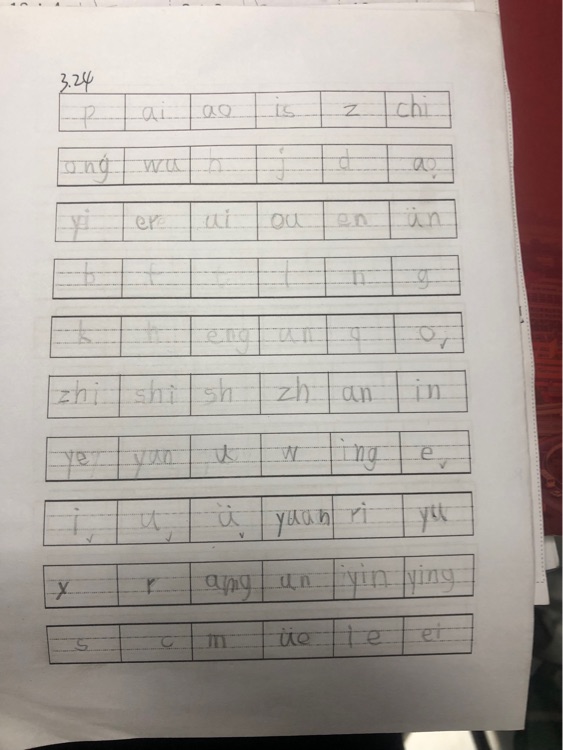 3.24
p ai ao is z chi
ong wu h j d a
yi er ui ou en ün
b f t l n g
k h eng un q o
zhi shi sh zh an in
ye yun u w ing e
i u ü yuan ri yu
x r ang un yin ying
s c m üe ie ei